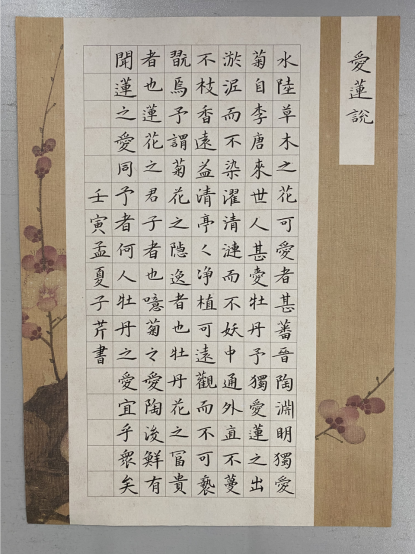 愛蓮說
水陸草木之花可愛者甚蕃晉陶淵明獨愛
菊自李唐來世人甚愛牡丹予獨愛蓮之出
淤泥而不染濯清漣而不妖中通外直不蔓
不枝香遠益清亭々净植可遠觀而不可褻
翫焉予謂菊花之隱逸者也牡丹花之冨貴
者也蓮花之君子者也噫菊之愛陶後鮮有
聞蓮之愛同予者何人牡丹之愛宜乎眾矣
壬寅孟夏子芹書